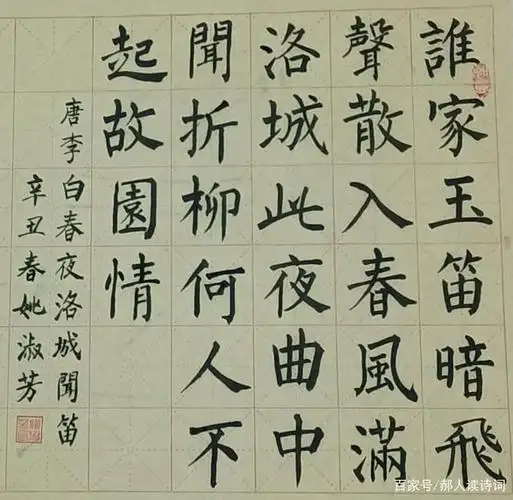 誰家玉笛暗飛
聲散入春風滿
洛城此夜曲中
聞折柳何人不
起故園情
唐李白春夜洛城聞笛
辛丑春姚淑芳
百家号/郝人读诗词